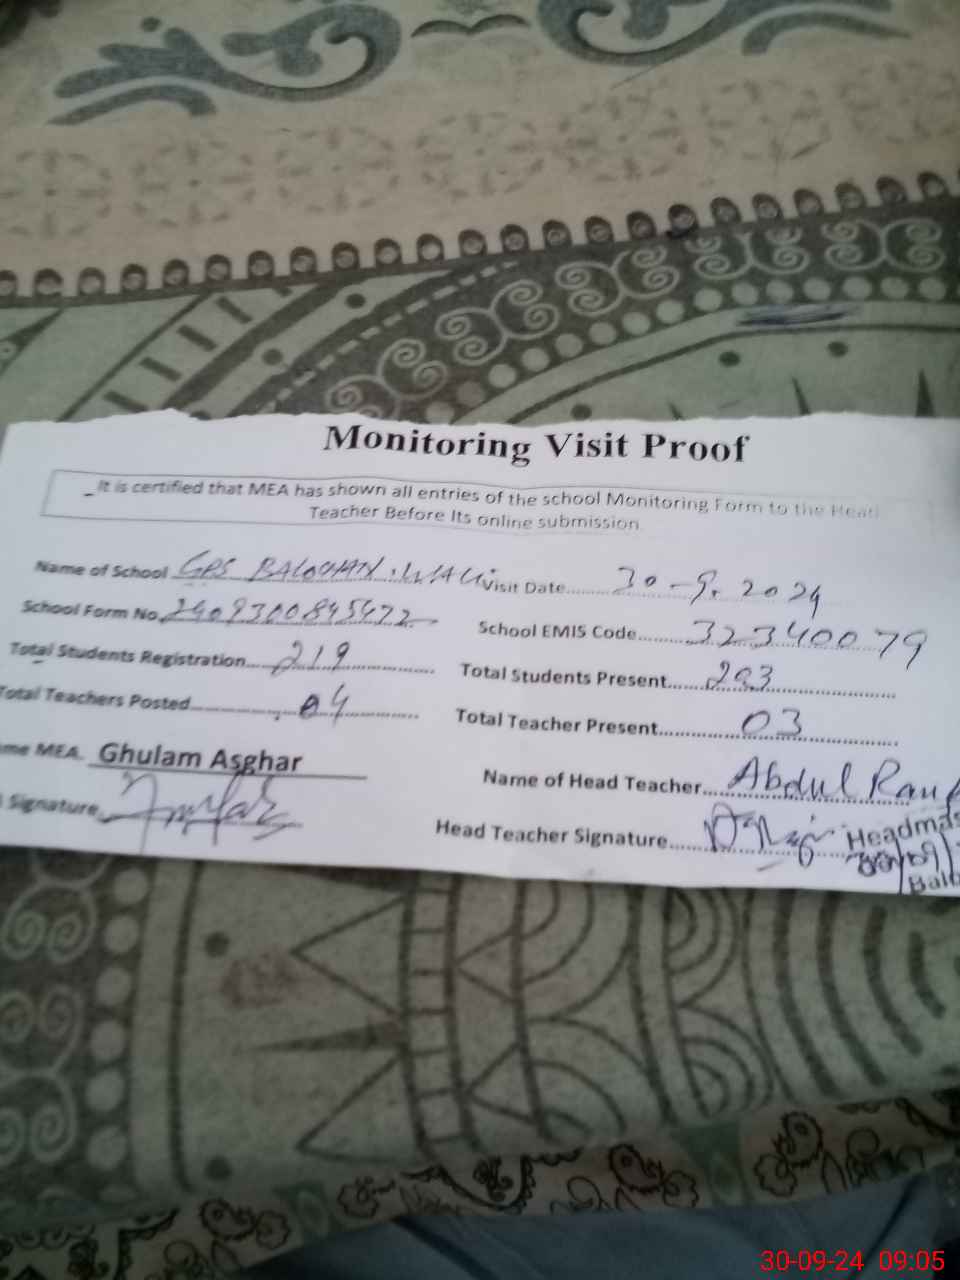 Monitoring Visit Proof
It is certified that MEA has shown all entries of the school Monitoring Form to the Head
Teacher Before Its online submission
Name of School GPS BALOCHAN WALI Visit Date 30-9-2024
School Form No. 2409300845472 School EMIS Code 32340079
Total Students Registration 219 Total Students Present 203
Total Teachers Posted 04 Total Teacher Present 03
me MEA. Ghulam Asghar Name of Head Teacher Abdul Rauf
Signature Head Teacher Signature
Headmas
Balo
30-09-24 09:05